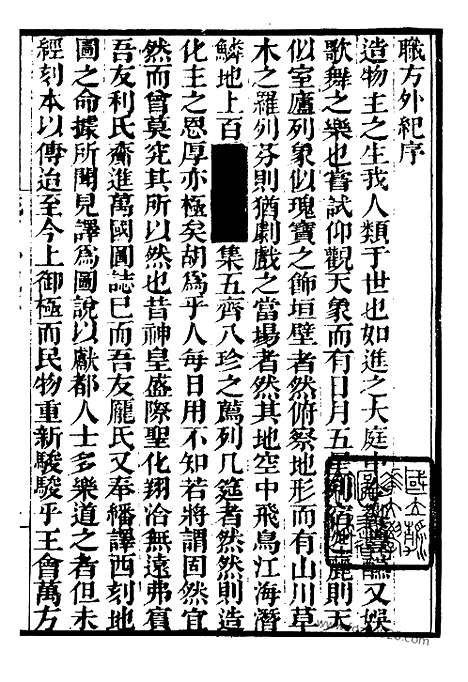 職方外紀序
造物主之生我人類于世也如進之大庭中醼又娛
歌舞之樂也嘗試仰觀天象而有日月五星列宿之麗則天
似室廬列象似瑰寶之飾垣壁者然俯察地形而有山川草
木之羅列芬則猶劇戲之當場者然其地空中飛鳥江海潛
鱗地上百集五齊八珍之薦列几筵者然然則造
化主之恩厚亦極矣胡爲乎人每日用不知若將謂固然宜
然而曾莫究其所以然也昔神皇盛際聖化翔洽無遠弗賓
吾友利氏齎進萬國圖誌已而吾友龐氏又奉繙譯西刻地
圖之命據所聞見譯爲圖說以獻都人士多樂道之者但未
經刻本以傳迨至今上御極而民物重新駿駿乎王會萬方